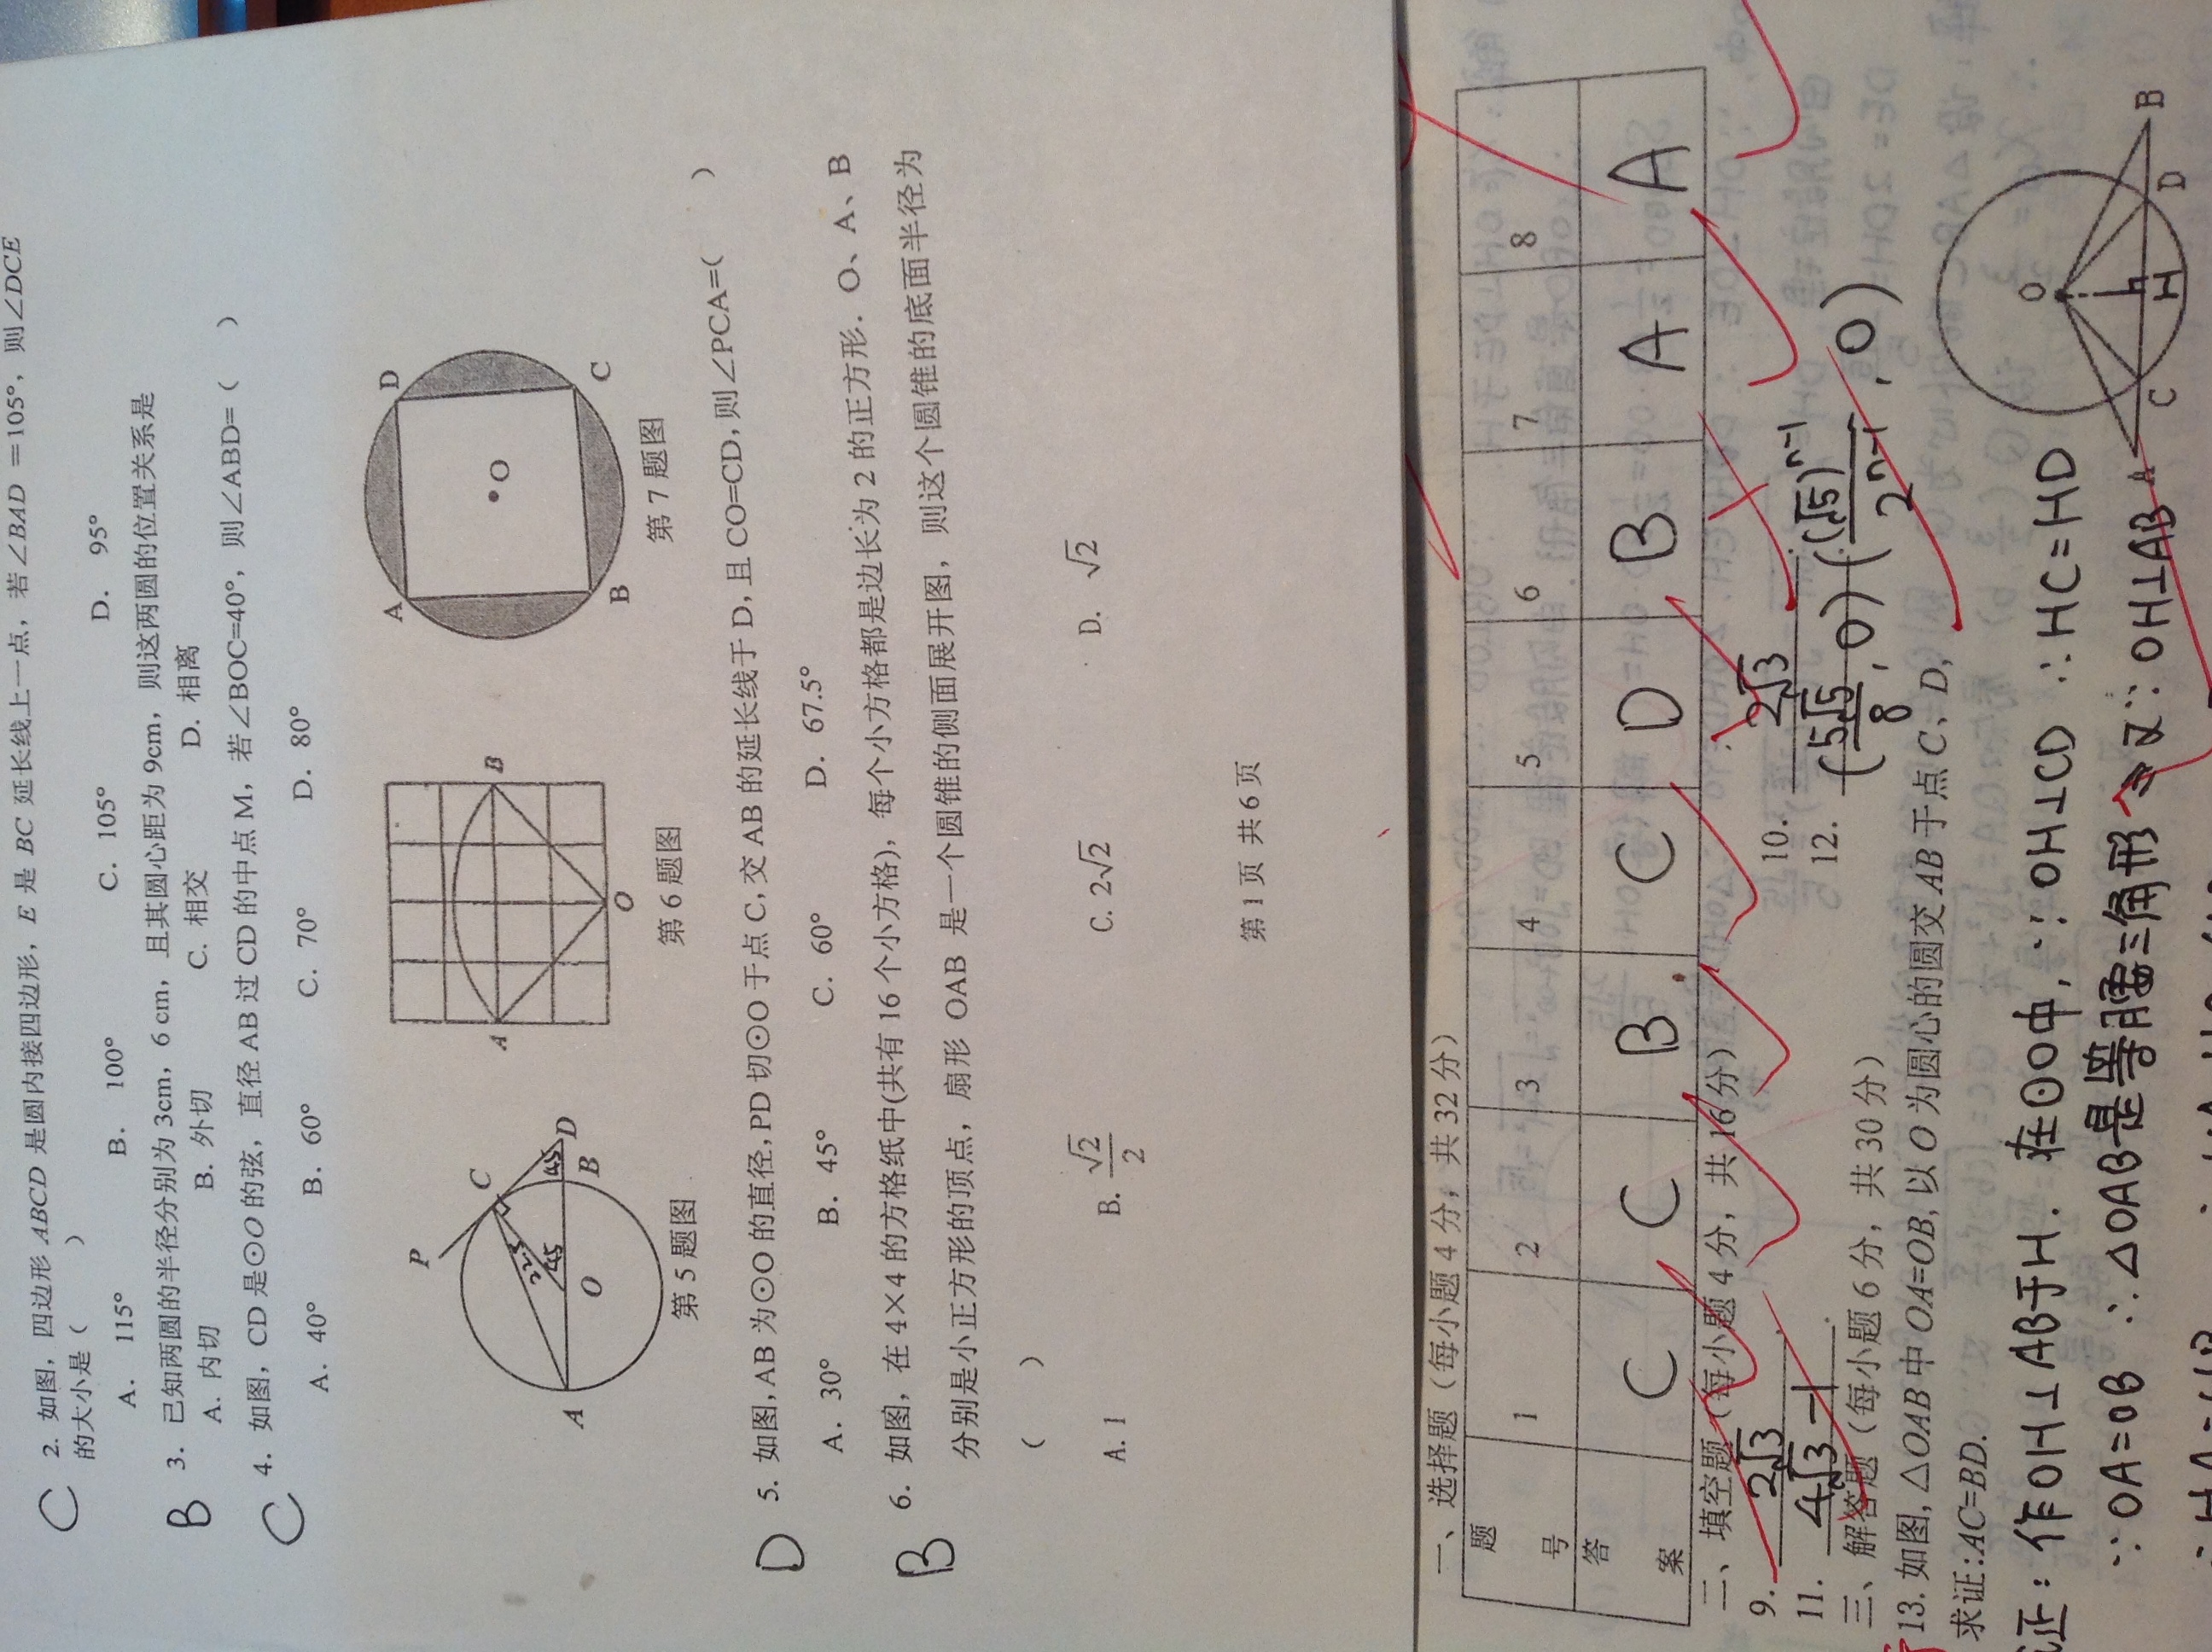 C 2. 如图，四边形 ABCD 是圆内接四边形，E 是 BC 延长线上一点，若∠BAD =105°，则∠DCE
的大小是（ ）
A. 115° B. 100° C. 105° D. 95°
B 3. 已知两圆的半径分别为 3cm，6 cm，且其圆心距为 9cm，则这两圆的位置关系是
A. 内切 B. 外切 C. 相交 D. 相离
C 4. 如图，CD 是⊙O 的弦，直径 AB 过 CD 的中点 M，若∠BOC=40°，则∠ABD=（ ）
A. 40° B. 60° C. 70° D. 80°
P
C
22.5
45
45
A
O
B
D
第 5 题图
A
B
O
第 6 题图
A
D
O
B
C
第 7 题图
D 5. 如图, AB 为⊙O 的直径, PD 切⊙O 于点 C, 交 AB 的延长线于 D, 且 CO=CD, 则∠PCA=( )
A. 30° B. 45° C. 60° D. 67.5°
B 6. 如图，在 4×4 的方格纸中(共有 16 个小方格)，每个小方格都是边长为 2 的正方形．O、A、B
分别是小正方形的顶点，扇形 OAB 是一个圆锥的侧面展开图，则这个圆锥的底面半径为
（ ）
A. 1 B. √2/2 C. 2√2 D. √2
第 1 页 共 6 页
一、选择题（每小题 4 分，共 32 分）
题号 1 2 3 4 5 6 7 8
答案 C C B. C D B A A
二、填空题（每小题 4 分，共 16 分）
9. 2√3 . 10. 2√3 .
11. 4√3 -1 . 12. (5√5/8 , 0) ((√5)^(n-1)/2^(n-1) , 0)
三、解答题（每小题 6 分，共 30 分）
13. 如图, △OAB 中 OA=OB, 以 O 为圆心的圆交 AB 于点 C、D,
求证:AC=BD.
证：作OH⊥AB于H. 在⊙O中, ∵ OH⊥CD ∴HC=HD
∵OA=OB ∴△OAB是等腰三角形 又∵ OH⊥AB
O
A
C
H
D
B